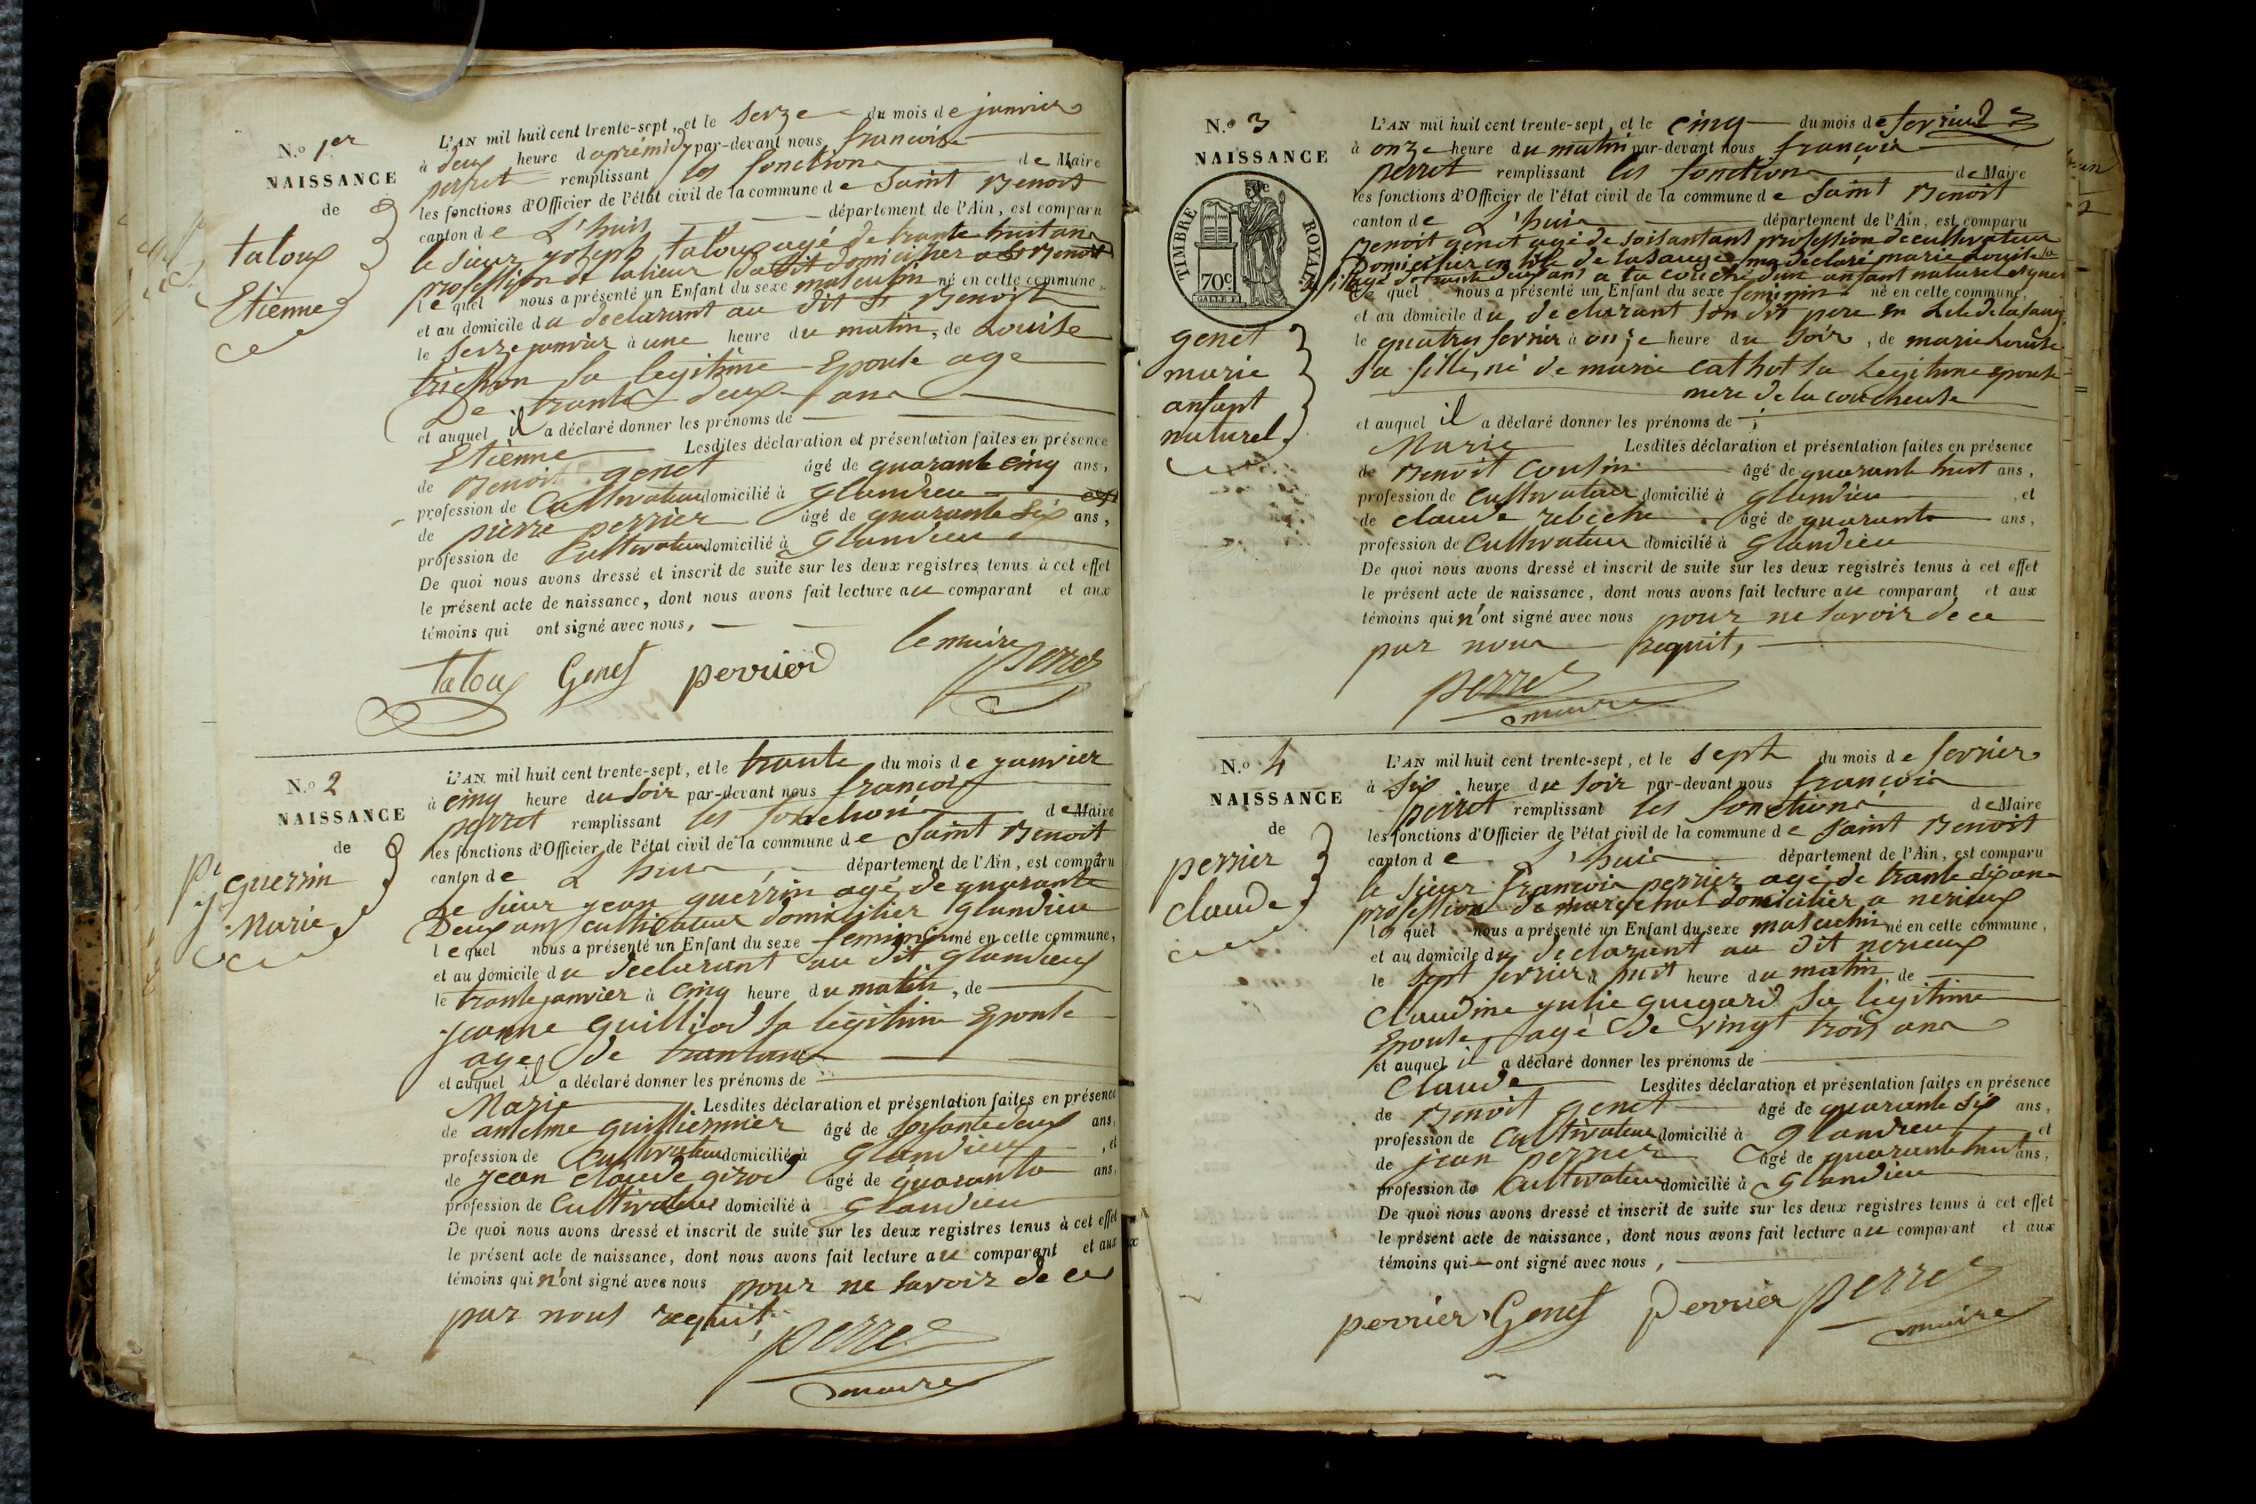 N.o 1er
NAISSANCE
de
taloux
Etienne
L'AN mil huit cent trente-sept, et le seize du mois de janvier
à deux heure d apremidy par-devant nous francois
perret remplissant les fonctions de Maire
les fonctions d'Officier de l'état civil de la commune de Saint Benoit
canton de L'huis département de l'Ain, est comparu
le sieur joseph taloux agé de trante huit ans
profession de domicilier a St Benoit
lequel nous a présenté un Enfant du sexe masculin né en cette commune,
et au domicile du declarant au dit St Benoit
le seize janvier à une heure du matin, de Louise
sa legitime Epouse age
De trante deux ans
et auquel il a déclaré donner les prénoms de
Etienne Lesdites déclaration et présentation faites en présence
de Benoit genet âgé de quarante cinq ans,
profession de Cultivateur domicilié à glandieu et
de pierre perrier âgé de quarante six ans,
profession de Cultivateur domicilié à Glandieu
De quoi nous avons dressé et inscrit de suite sur les deux registres tenus à cet effet
le présent acte de naissance, dont nous avons fait lecture au comparant et aux
témoins qui ont signé avec nous,
le maire
taloux Genet perrier perret
N.o 2
NAISSANCE
de
guerrin
Marie
L'AN mil huit cent trente-sept, et le trante du mois de janvier
à cinq heure du soir par-devant nous francois
perret remplissant les fonctions de Maire
les fonctions d'Officier de l'état civil de la commune de Saint Benoit
canton de L'huis département de l'Ain, est comparu
Le sieur jean guerrin agé de quarante
Deux ans cultivateur domicilier glandieu
lequel nous a présenté un Enfant du sexe feminin né en cette commune,
et au domicile du declarant au dit glandieux
le trante janvier à cinq heure du matin, de
jeanne Guilliod sa legitime Epouse
age de trantans
et auquel il a déclaré donner les prénoms de
Marie Lesdites déclaration et présentation faites en présence
de antelme guilliermier âgé de soisante deux ans,
profession de Cultivateur domicilié à Glandieux, et
de jean claude girod âgé de quarante ans,
profession de Cultivateur domicilié à Glandieu
De quoi nous avons dressé et inscrit de suite sur les deux registres tenus à cet effet
le présent acte de naissance, dont nous avons fait lecture au comparant et aux
témoins qui n'ont signé avec nous pour ne savoir de ce
par nous requit,
perret
maire
N.o 3
NAISSANCE
de
TIMBRE ROYAL
70c
genet
marie
anfant
naturel
L'AN mil huit cent trente-sept, et le cinq du mois de fevrier
à onze heure du matin par-devant nous françois
perret remplissant les fonctions de Maire
les fonctions d'Officier de l'état civil de la commune de Saint Benoit
canton de L'huis département de l'Ain, est comparu
Benoit genet agé de soisantans profession de cultivateur
Domicilier en lile de la sauge ma déclaré marie Louise sa
fille agé de trante deux ans a la couché d'un anfant naturel
le quel nous a présenté un Enfant du sexe feminin né en cette commune,
et au domicile du declarant son dit pere en Lile de la sauge
le quatres fevrier à onze heure du soir, de marie Louise
sa fille, né de marie cathot sa Legitime epouse
mere de la coucheuse
et auquel il a déclaré donner les prénoms de
Marie Lesdites déclaration et présentation faites en présence
de Benoit Cousin âgé de quarante huit ans,
profession de cultivateur domicilié à glandieu, et
de claude rebiche âgé de quarante ans,
profession de Cultivateur domicilié à glandieu
De quoi nous avons dressé et inscrit de suite sur les deux registres tenus à cet effet
le présent acte de naissance, dont nous avons fait lecture au comparant et aux
témoins qui n'ont signé avec nous pour ne savoir de ce
par nous requit,
perret
maire
N.o 4
NAISSANCE
de
perrier
claude
L'AN mil huit cent trente-sept, et le sept du mois de fevrier
à six heure du soir par-devant nous françois
perret remplissant les fonctions de Maire
les fonctions d'Officier de l'état civil de la commune de Saint Benoit
canton de L'huis département de l'Ain, est comparu
le sieur françois perrier agé de trante six ans
profession de marechal domicilier a nerieux
le quel nous a présenté un Enfant du sexe masculin né en cette commune,
et au domicile du declarant au dit nerieux
le sept fevrier à huit heure du matin, de
Claudine julie guigard sa légitime
Epouse agé de vingt trois ans
et auquel il a déclaré donner les prénoms de
Claude Lesdites déclaration et présentation faites en présence
de Benoit genet âgé de quarante six ans,
profession de Cultivateur domicilié à glandieu et
de jean perrier âgé de quarante huit ans,
profession de Cultivateur domicilié à Glandieu
De quoi nous avons dressé et inscrit de suite sur les deux registres tenus à cet effet
le présent acte de naissance, dont nous avons fait lecture au comparant et aux
témoins qui ont signé avec nous,
perrier Genet perrier perret
maire